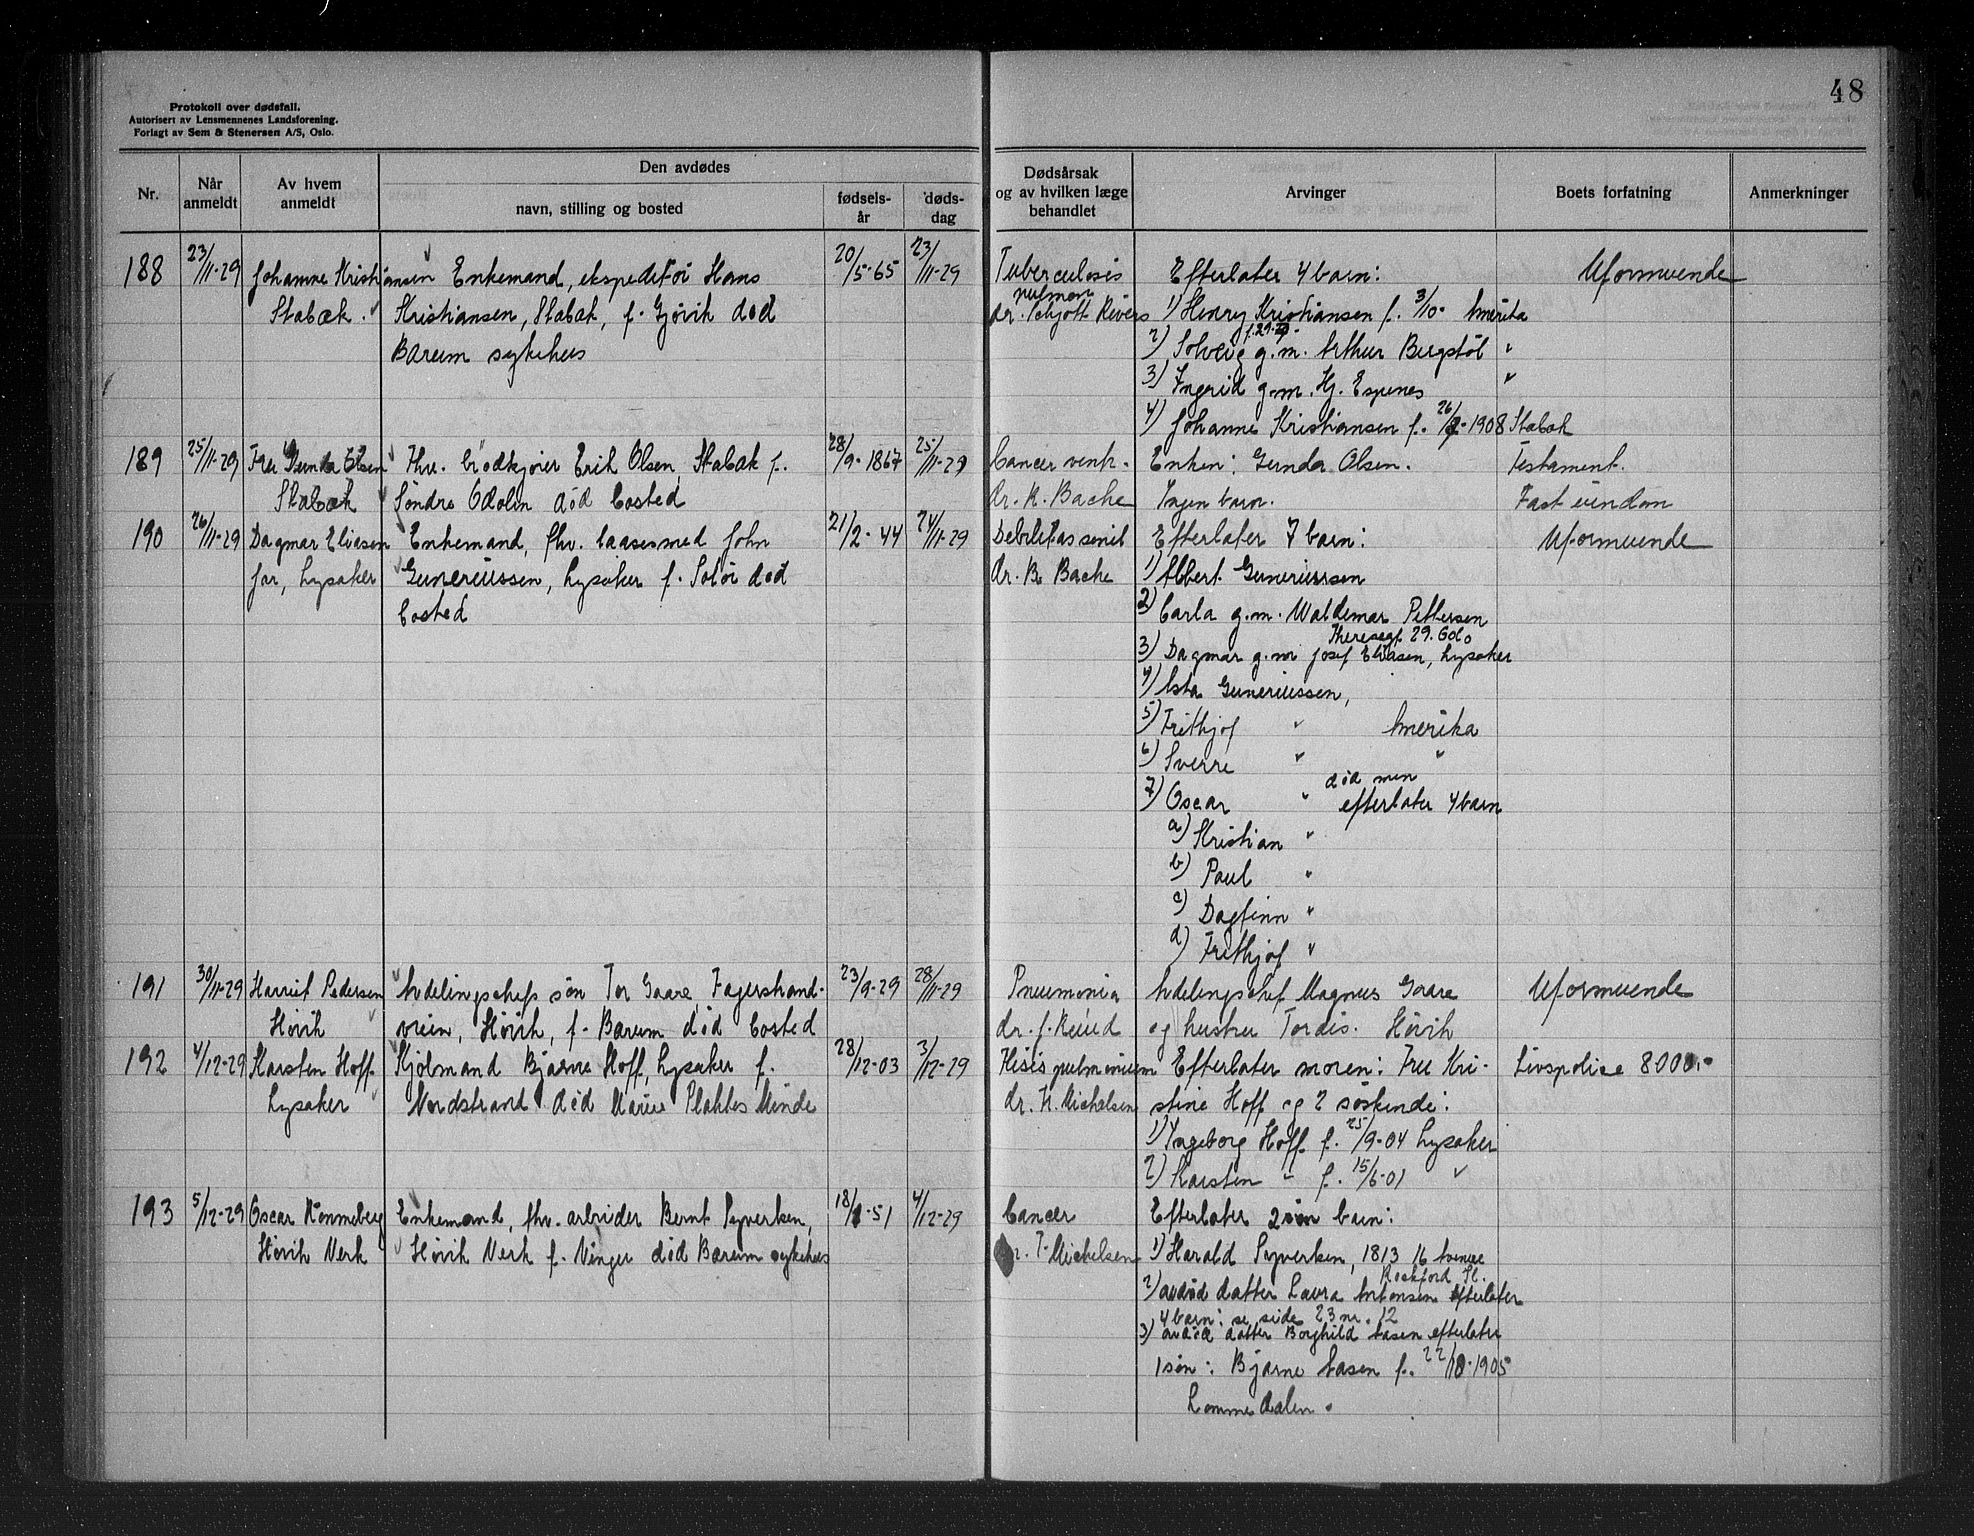 48
Protokoll over dødsfall.
Autorisert av Lensmennenes Landsforening.
Forlagt av Sem & Stenersen A/S, Oslo.
Nr.
Når anmeldt
Av hvem anmeldt
Den avdødes
navn, stilling og bosted
fødsels-år
døds-dag
Dødsårsak og av hvilken læge behandlet
Arvinger
Boets forfatning
Anmerkninger
188 23/11-29 Johanne Kristiansen Enkemand, ekspeditør Hans 20/5-65 23/11-29 Tuberculosis Efterlater 4 barn: Uformuende
pulmon
Stabæk. Kristiansen, Stabæk, f. Gjøvik død dr. Schjøtt Rivers 1) Henry Kristiansen f. 3/10- Amerika
Bærum sykehus 2) Solveig g.m. Arthur Bergstøl "
3) Ingrid g.m. Hj. Espenes "
4) Johanne Kristiansen f. 26/2-1908 Stabæk
189 25/11-29 Fru Gunda Olsen Fhv. brødkjører Erik Olsen, Stabæk f. 28/9-1867 25/11-29 Cancer ventr. Enken: Gunda Olsen. Testament.
Stabæk Søndre Odalen død bosted dr. K. Bache Ingen barn. Fast eiendom
190 26/11-29 Dagmar Eliasen Enkemand, fhv. baasesmed John 21/2-44 24/11-29 Debilitas senil Efterlater 7 barn: Uformuende
far, Lysaker Guneriussen, Lysaker f. Solør død dr. K. Bache 1) Albert Guneriussen
bosted 2) Carla g.m. Waldemar Pettersen
Theresegt. 29. Oslo
3) Dagmar g.m. Josef Eliasen, Lysaker
4) Asta Guneriussen,
5) Frithjof " Amerika
6) Sverre " "
død men
7) Oscar " efterlater 4 barn
a) Kristian "
b) Paul "
c) Dagfinn "
d) Frithjof "
191 30/11-29 Harriet Pedersen Avdelingschefs søn Tor Gaare Fagerstrand- 23/9-29 28/11-29 Pneumonia Avdelingschef Magnus Gaare Uformuende
Høvik veien, Høvik, f. Bærum død bosted dr. J. Reiud og hustru Tordis. Høvik
192 4/12-29 Karsten Hoff Sjømand Bjarne Hoff, Lysaker f. 28/12-03 3/12-29 Ftisis pulmonium Efterlater moren: Fru Kri- Livspolice 8000,-
Lysaker Nordstrand død Marie Plahtes Minde dr. H. Michelsen stine Hoff og 2 søskende:
1) Ingeborg Hoff f. 25/9-04 Lysaker
2) Karsten " f. 15/6-01 "
193 5/12-29 Oscar Rønneberg Enkemand, fhv. arbeider Bernt Syversen, 18/1-51 4/12-29 Cancer Efterlater barn:
Høvik Verk Høvik Verk f. Vinger død Bærum sykehus dr. T. Michelsen 1) Harald Syversen, 1813 16 Avenue
Rockford Il.
2) avdød datter Laura Antonsen efterlater
4 barn: se side 23 nr. 12
3) avdød datter Borghild Aasen efterlater
1 søn: Bjarne Aasen f. 22/10-1905
Lommedalen.